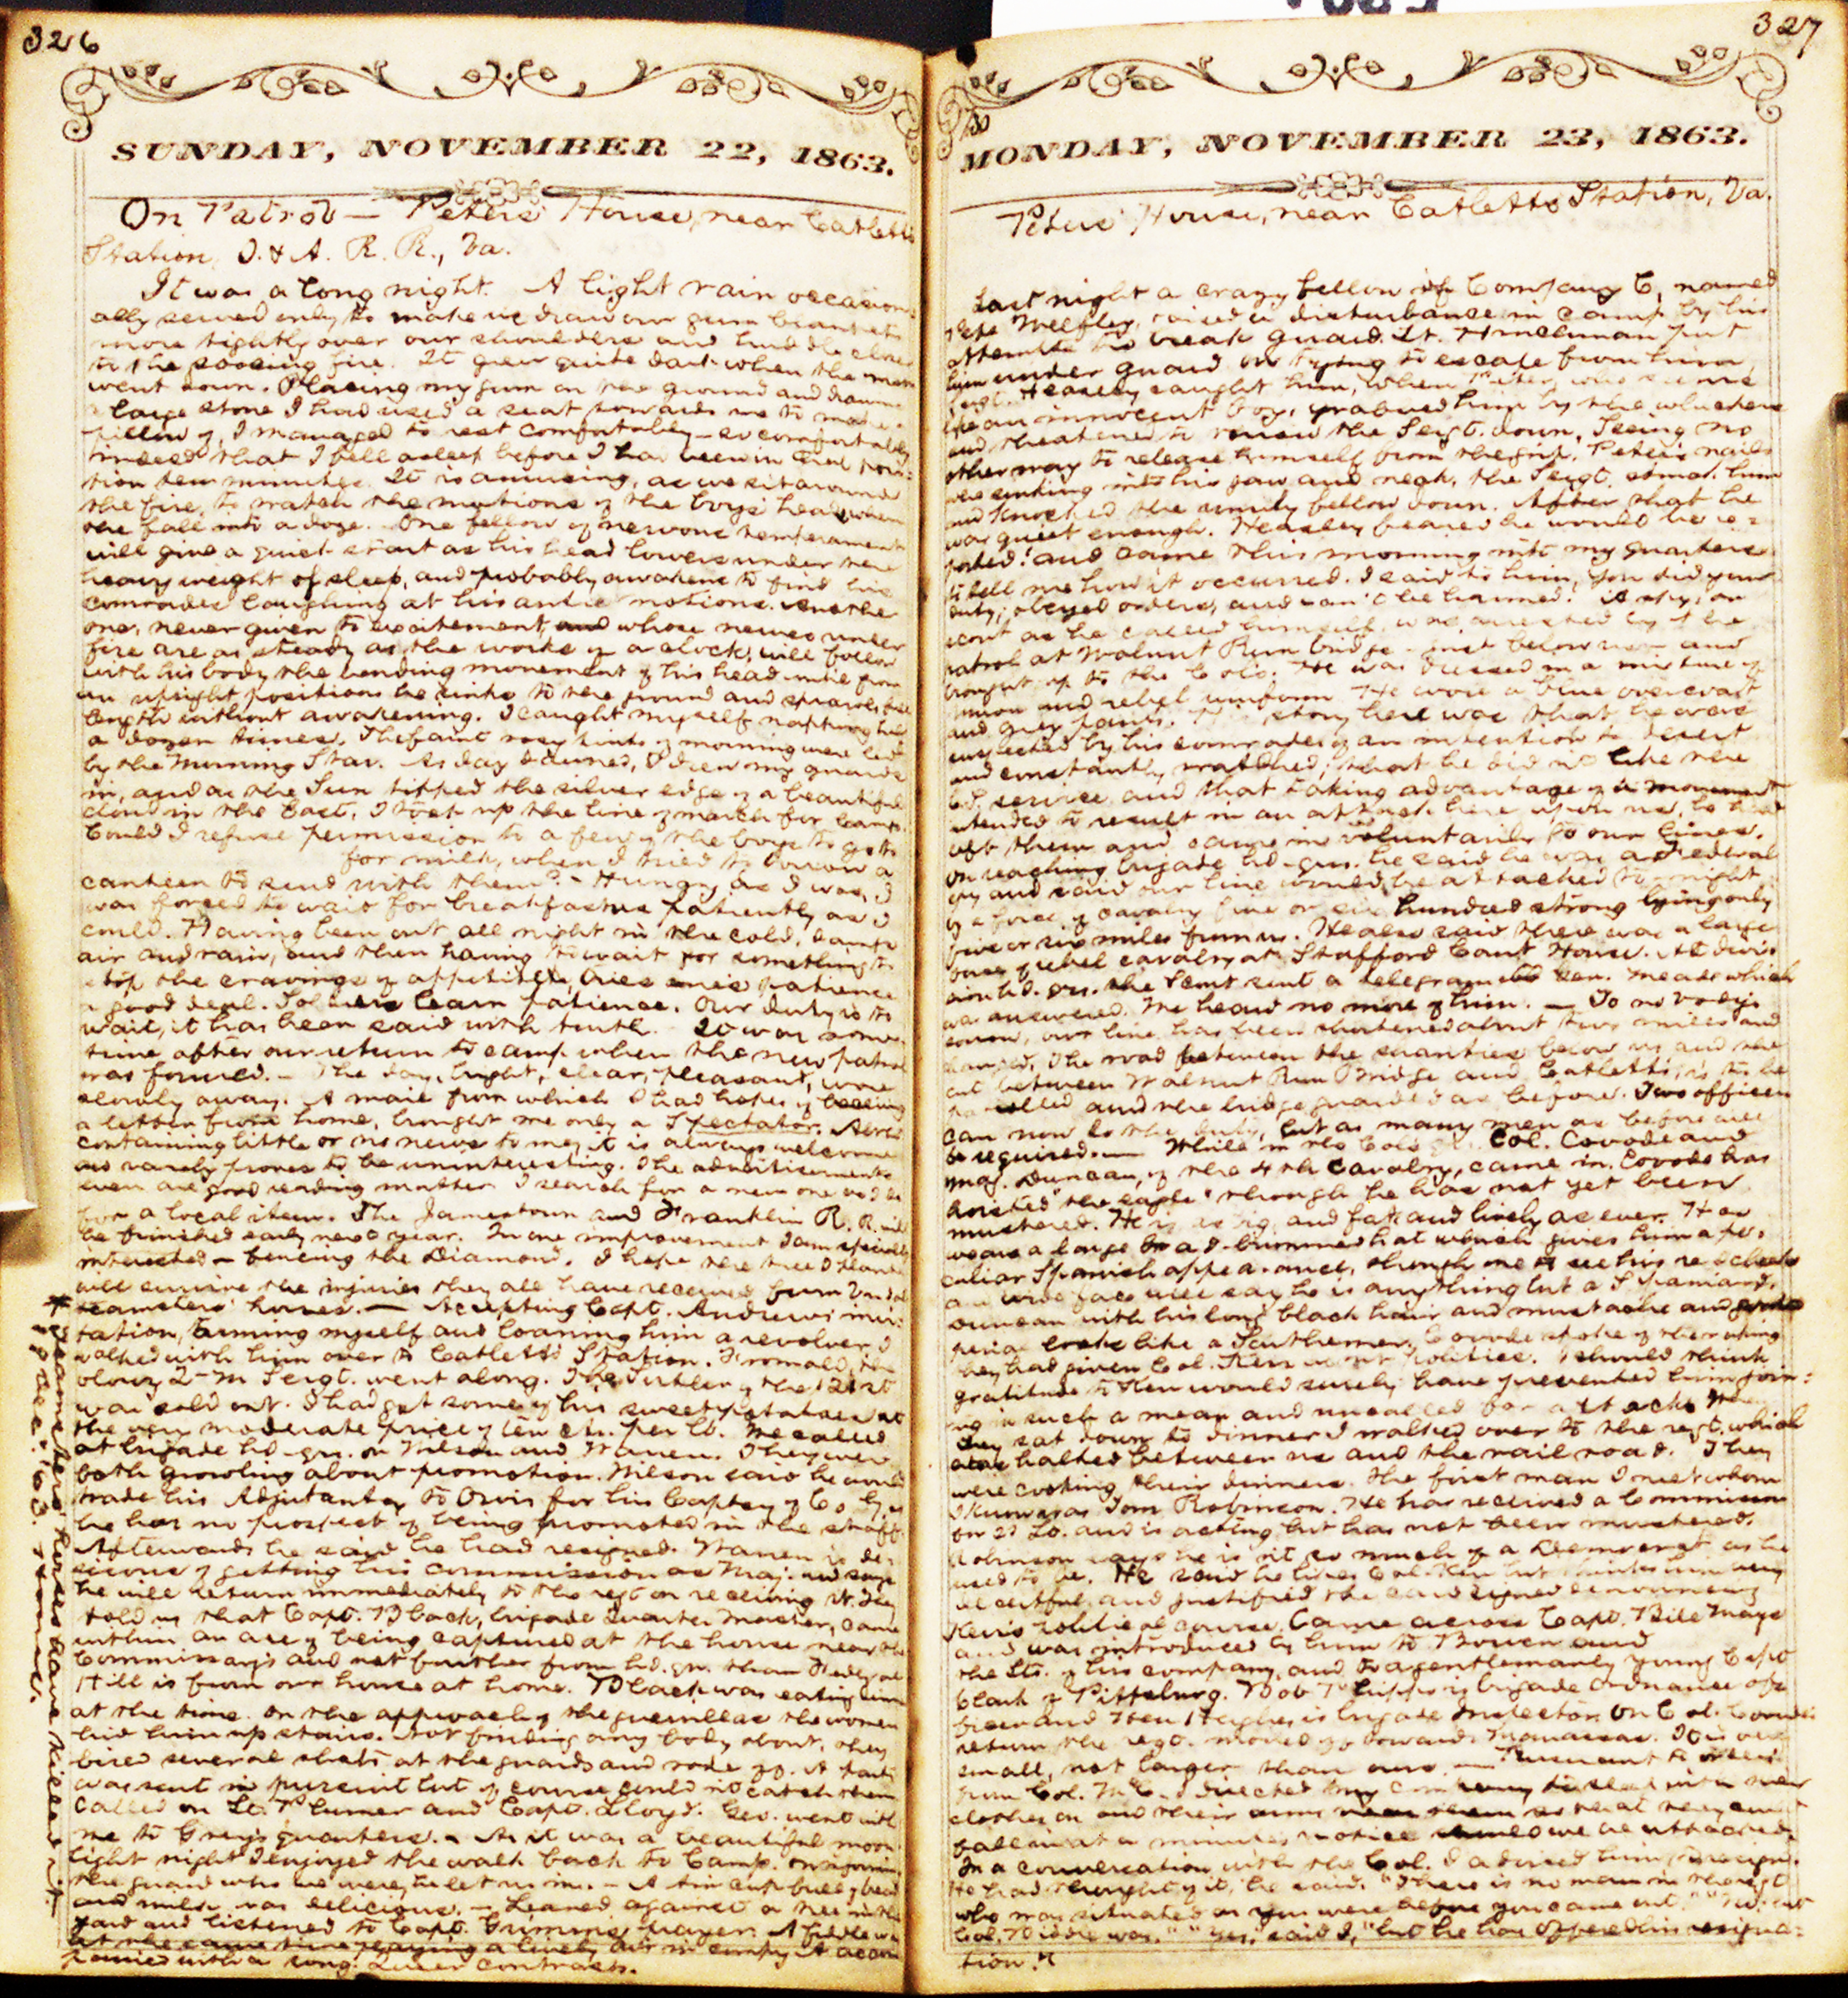 326
SUNDAY, NOVEMBER 22, 1863.
On Patrol — Peters' House, near Catletts
Station, O. & A. R. R., Va.
It was a long night. A light rain occasion-
ally served only to make us draw our gum blankets
more tightly over our shoulders and huddle closer
to the fire. It grew quite dark when the moon
went down. Placing my gum on the ground and drawing
a large stone I had used a seat towards me to make a
pillow of, I managed to rest comfortably — so comfortably
indeed that I fell asleep before I had been in that posi-
tion ten minutes. It is amusing, as we sit around
the fire, to watch the motions of the boys' heads when
they fall into a doze. One fellow of nervous temperament
will give a quick start as his head lowers under the
heavy weight of sleep, and probably awakens to find his
comrades laughing at his antic motions. Another
one, never given to excitement, and whose nerves under
fire are as steady as the works of a clock, will follow
with his body the bending movement of his head until from
an upright position he sinks to the ground and sprawls full
length without awakening. I caught myself napping half
a dozen times. The faint rosy tints of morning were led
by the Morning Star. As day dawned, I drew my guards
in, and as the Sun tipped the silver edge of a beautiful
cloud in the East, I took up the line of march for Camp.
Could I refuse permission to a few of the boys to go to
for milk, when I tried to borrow a
canteen to send with them? — Hungry as I was, I
was forced to wait for breakfast as patiently as I
could. Having been out all night in the cold, damp
air and rain, and then having to wait for something to
stop the cravings of appetite, tries one's patience
a good deal. Soldiers learn patience. Our duty is to
wait, it has been said with truth. It was some
time after our return to camp when the new patrol
was formed. — The day, bright, clear, pleasant, wore
slowly away. A mail from which I had hopes of receiving
a letter from home, brought me only a Spectator. Altho'
containing little or no news to me, it is always welcome
and rarely proves to be uninteresting. The advertisements
even are good reading matter. I search for a new one as I do
for a local item. The Jamestown and Franklin R. R. will
be finished early next year. In one improvement I am specially
interested — fencing the Diamond. I hope the tree I planted
will survive the injuries they all have received from
teamsters' horses. — Accepting Capt. Andrews' invi-
tation, arming myself and loaning him a revolver I
walked with him over to Catletts Station. the
Q-M Sergt. went along. The Sutler of the 121st
was sold out. I had got some of his sweet potatoes at
the very moderate price of ten cts. per lb. We called
at brigade hd-qrs. on Wilson and Warren. They were
both growling about promotion. Wilson said he would
trade his Adjutantcy to Orvis for his Captcy of Co. as
he has no prospect of being promoted in the staff.
Afterwards he said he had resigned. Warren is de-
sirous of getting his commission as Maj. and says
he will return immediately to the regt on receiving it. They
told us that Capt. Black, brigade Quarter Master, came
within an ace of being captured at the house near the
Commissary's and not further from hd. qrs. than
Hill is from our house at home. Black was eating
at the time. On the approach of the guerillas the women
hid him up stairs. Not finding any body about, they
fired several shots at the guards and rode off. A party
was sent in pursuit but of course could n't catch them.
Called on Lt. Plumer and Capt. Lloyd. Geo. went with
me to Grey's quarters. — As it was a beautiful moon-
light night I enjoyed the walk back to Camp. On informing
the guard who we were, he let us in. — A tin cup full of bread
and milk was delicious. — Leaned against a tree in the
yard and listened to Capt. Grimm's prayer. A fiddle was
at the same time playing a lively air in camp, accom-
panied with a song. Queer contrasts.
* Teamsters' horses have killed it.
Dec. '63. Home.
327
MONDAY, NOVEMBER 23, 1863.
Peters' House, near Catletts Station, Va.
Last night a crazy fellow of Company C, named
Pete raised a disturbance in camp by his
attempts to break guard. Lt. put
him under guard. On trying to escape from him,
Sergt. Heasley caught him, when Peter, who seems
like an innocent boy, grabbed him by the whiskers
and threatened to the Sergt. down. Seeing no
other way to release himself from the grip, Peter's nails
were sinking into his jaw and neck, the Sergt. struck him
and knocked the unruly fellow down. After that he
was quiet enough. Heasley feared he would be re-
ported! and came this morning into my quarters
to tell me how it occurred. I said to him, you did your
duty; obeyed orders, and can't be harmed! A spy, or
scout as he called himself, was arrested by the
patrol at Walnut Run bridge - just below us - and
brought up to the Col's. He was dressed in a mixture of
union and rebel uniform. He wore a blue overcoat
and grey pants. His story here was that he was
suspected by his comrades of an intention to desert
and constantly watched; that he did not like the
service, and that taking advantage of a movement
intended to result in an attack here upon us, he had
left them and came in voluntarily to our lines.
On reaching brigade hd-qrs. he said he was a Federal
spy and said our line would be attacked to night
by a force of cavalry five or six hundred strong lying only
five or six miles from us. He also said there was a large
force of rebel cavalry at Stafford Court House. At divis-
ion hd. qrs. the Scout sent a telegram to Gen. Meade which
was answered. We heard no more of him. — To no body's
sorrow, our line has been shortened about two miles and
changed. The road between the below us and the
cut between Walnut Run Bridge and Catletts, is to be
patrolled and the bridge guarded as before. Two officers
can now do the duty, but as many men as before are
required. — While in the Col's Col. Covode and
Maj. Duncan, of the 4th Cavalry, came in. Covode has
hoisted "the eagle" though he has not yet been
mustered. He is as big and fat and lively as ever. He
wears a large hat which gives him a pe-
culiar Spanish appearance, though one to see his red cheeks
and wide face will say he is anything but a Spaniard.
Duncan with his long black hair and mustache and
looks like a Southerner. Covode spoke of the raking
they had given Col. Kerr about politics. I should think
gratitude to Kerr would surely have prevented him join-
ing in such a mean and uncalled for attack. When
they sat down to dinner I walked over to the regt. which
was halted between us and the rail road. They
were cooking their dinners. The first man I met whom
I knew was Tom Robinson. He has received a Commission
for 2d Lt. and is acting but has not been mustered.
Robinson says he is n't so much of a Democrat as he
used to be. He said he likes Col. Kerr but thinks him very
deceitful, and justified the denouncing
Kerr's political course. Came across Capt. Bill Mays
and was introduced by him to Bowen and
the Lts. of his company, and to a gentlemanly young Capt.
Clark of Pittsburg. Bob Phipps is brigade ordnance of-
ficer and is brigade Inspector. On Col. Covode's
return the regt. moved off towards Manassas. It is very
small, not larger than ours. — Pursuant to orders
from Col. McC. I directed my company to sleep with their
clothes on and their arms near them so that they could
fall in at a minute's notice should we be attacked.
In a conversation with the Col. I advised him to resign.
He had thought of it, he said. "There is no man in the regt
who was situated as you were before you came out." "
Col. Biddle was." "Yes," said I, "but he has offered his resigna-
tion."